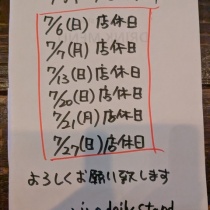 7/6(日)店休日
7/7(月)店休日
7/13(日)店休日
7/20(日)店休日
7/21(月)店休日
7/27(日)店休日
よろしくお願い致します